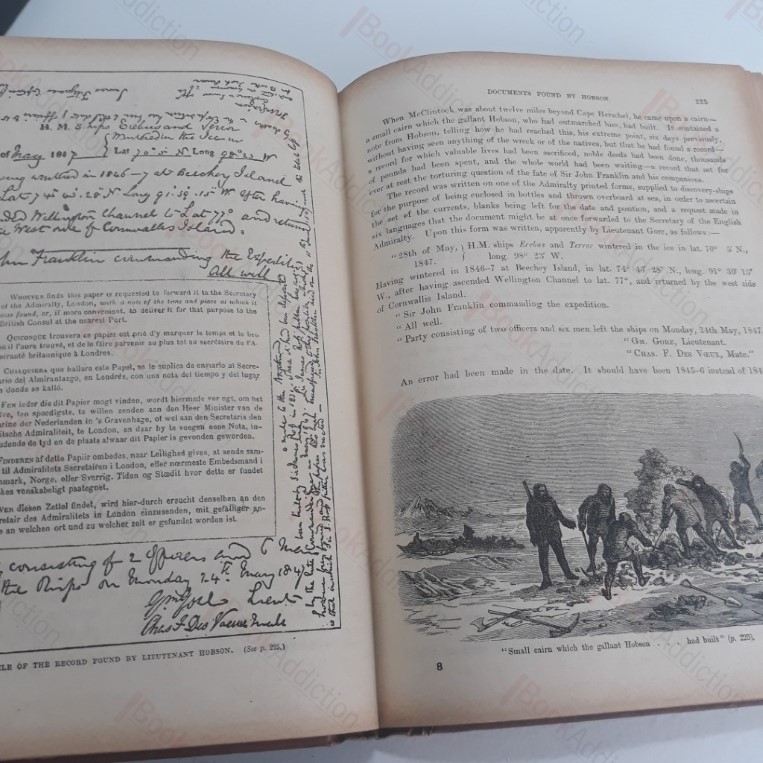 H.M.S. ships Erebus and Terror
Wintered in the Ice in
of May 1847 Lat 70° 5' N. Long 98° 23' W
wintered in 1846-7 at Beechey Island
Lat 74° 43' 28" N Long 91° 39' 15" W after having
ded Wellington Channel to Lat 77° and return
West side of Cornwallis Island.
hn Franklin commanding the Expedition
All well
WHOEVER finds this paper is requested to forward it to the Secretary
of the Admiralty, London, with a note of the time and place at which it
was found, or, if more convenient, to deliver it for that purpose to the
British Consul at the nearest Port.
QUICONQUE trouvera ce papier est prié d'y marquer le tems et le
où il l'aura trouvé, et de le faire parvenir au plus tot au secrétaire de l'A
irauté britannique à Londres.
CUALQUIERA que hallare este Papel, se le suplica de enviarlo al Secre-
ario del Almirantazgo, en Londrés, con una nota del tiempo y del lugar
donde se halló.
EEN ieder die dit Papier mogt vinden, wordt hiermede ver gt, om het
ve, ten spoedigste, te willen zenden aan den Heer Minister van de
arine der Nederlanden in 's Gravenhage, of wel aan den Secretaris den
itsche Admiraliteit, te London, en daar by te voegen eene Nota, in-
udende de tyd en de plaats alwaar dit Papier is gevonden geworden.
FINDEREN af dette Papiir ombedes, naar Leilighed gives, at sende sam-
til Admiralitets Secretairen i London, eller nærmeste Embedsmand i
nmark, Norge, eller Sverrig. Tiden og Stædit hvor dette er fundet
kes venskabeligt paategnet.
WER diesen Zettel findet, wird hier-durch ersucht denselben an den
retair des Admiralitets in London einzusenden, mit gefälliger an-
e an welchen ort und zu welcher zeit er gefundet worden ist.
consisting of 2 Officers and 6 Men
the Ships on Monday 24th May 1847
Gm Gore Lieut
Chas F Des Voeux Mate
LE OF THE RECORD FOUND BY LIEUTENANT HOBSON. (See p. 225.)
DOCUMENTS FOUND BY HOBSON 225
When McClintock was about twelve miles beyond Cape Herschel, he came upon a cairn—
a small cairn which the gallant Hobson, who had outmarched him, had built. It contained a
note from Hobson, telling how he had reached this, his extreme point, six days previously,
without having seen anything of the wreck or of the natives, but that he had found a record—
a record for which valuable lives had been sacrificed, noble deeds had been done, thousands
of pounds had been spent, and the whole world had been waiting—a record that set for
ever at rest the torturing question of the fate of Sir John Franklin and his companions.
The record was written on one of the Admiralty printed forms, supplied to discovery-ships
for the purpose of being enclosed in bottles and thrown overboard at sea, in order to ascertain
the set of the currents, blanks being left for the date and position, and a request made in
six languages that the document might be at once forwarded to the Secretary of the English
Admiralty. Upon this form was written, apparently by Lieutenant Gore, as follows:—
"28th of May, H.M. ships Erebus and Terror wintered in the ice in lat. 70° 5' N.,
1847. long. 98° 23' W.
Having wintered in 1846-7 at Beechey Island, in lat. 74° 43' 28" N., long. 91° 39' 15"
W., after having ascended Wellington Channel to lat. 77°, and returned by the west side
of Cornwallis Island.
"Sir John Franklin commanding the expedition.
"All well.
"Party consisting of two officers and six men left the ships on Monday, 24th May, 1847.
"GM. GORE, Lieutenant.
"CHAS. F. DES VŒUX, Mate."
An error had been made in the date. It should have been 1845-6 instead of 184
"Small cairn which the gallant Hobson . . . had built" (p. 225).
8
BookAddiction